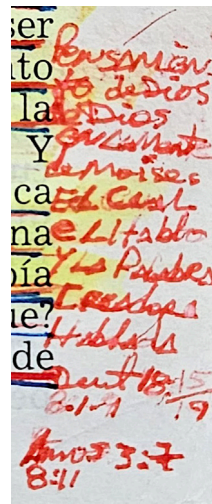 ser
to
la
Y
ca
na
ía
ue?
de
Pensamien
to de Dios
Dios
en la Mente
de Moises
EL Cual
eL Hablo
Y La Palabra
Creadora
Hablada
Deut 18:15
8:1-9 19
Amos 3:7
8:11